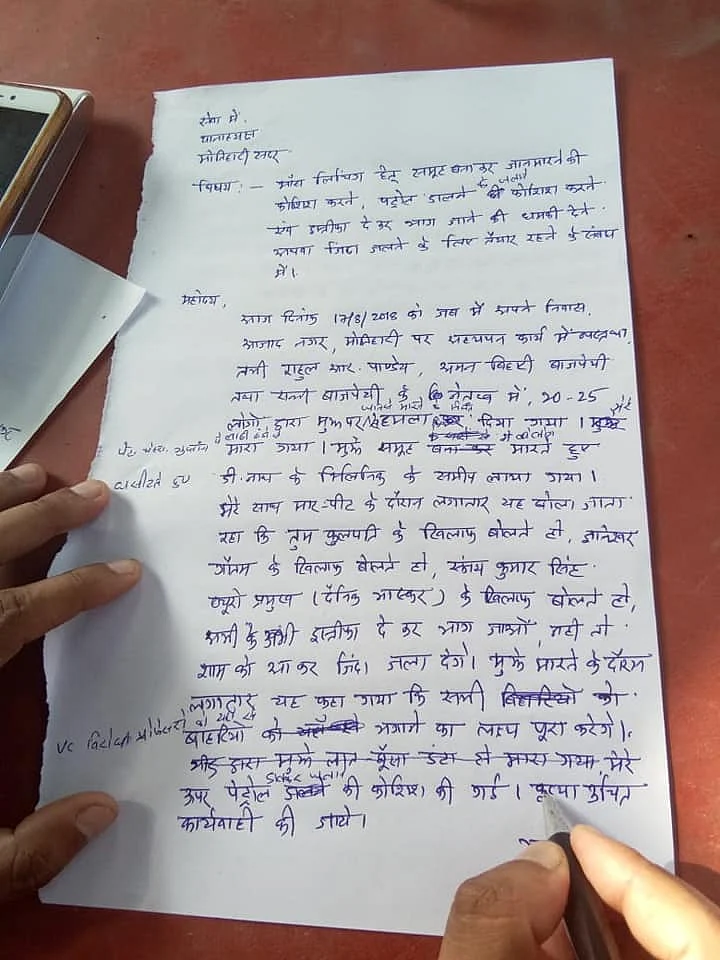 सेवा में,
थानाध्यक्ष
मोतिहारी सदर
विषय :- माँब लिंचिंग हेतु समूह बना कर जान मारने की
कोशिश करने, पेट्रोल डालने के जलाने की कोशिश करने
एवं इस्तीफा दे कर भाग जाने की धमकी देने
अथवा जिंदा जलने के लिए तैयार रहने के संबंध
में।
महोदय,
आज दिनांक 17/8/2018 को जब मैं अपने निवास,
आजाद नगर, मोतिहारी पर अध्ययन कार्य में व्यस्त था,
तभी राहुल आर. पाण्डेय, अमन बिहारी बाजपेयी
तथा सन्नी बाजपेयी के नेतृत्व में, 20-25
लोगो द्वारा मुझ पर जानसे मारने के हमला कर दिया गया। मुझे मेरे
मारा गया। मुझे समूह बना कर मारते हुए
घसीटते हुए डी. नाथ के क्लिनिक के समीप लाया गया।
मेरे साथ मार-पीट के दौरान लगातार यह बोला जाता
रहा कि तुम कुलपति के खिलाफ बोलते हो, ज्ञानेश्वर
गौतम के खिलाफ बोलते हो, संजय कुमार सिंह
ब्यूरो प्रमुख (दैनिक भास्कर) के खिलाफ बोलते हो,
अभी के अभी इस्तीफा दे कर भाग जाओ, नहीं तो
शाम को आ कर जिंदा जला देंगे। मुझे मारने के दौरान
लगातार यह कहा गया कि सभी बिहारियो को
VC विरोधी प्रोफेसरों को यहाँ से
बाहरियो को यहाँ से भगाने का लक्ष्य पूरा करेंगे।
भीड़ द्वारा मुझे लात घूँसा डंटा से मारा गया, मेरे
ऊपर पेट्रोल डालकर जलाने की कोशिश की गई। कृप्या उचित
कार्यवाही की जाये।